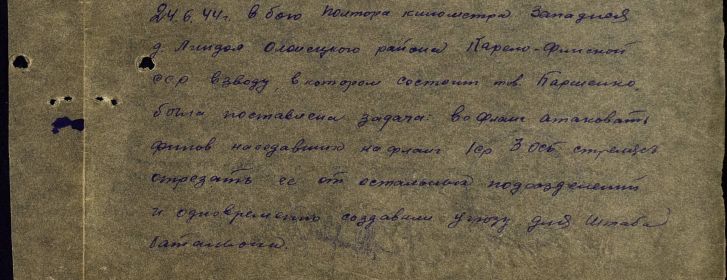 24.6.44г. в бою полтора километра Западнея
д. Олонецкого района Карело-Финской
сср взводу, в котором состоит тов. Паршенко,
была поставлена задача: во фланг атаковать
финов наседавших на фланг 1ср 3 ОСБ,
отрезать ее от остальных подразделений
и одновременно создавали угрозу для Штаба
батальона.